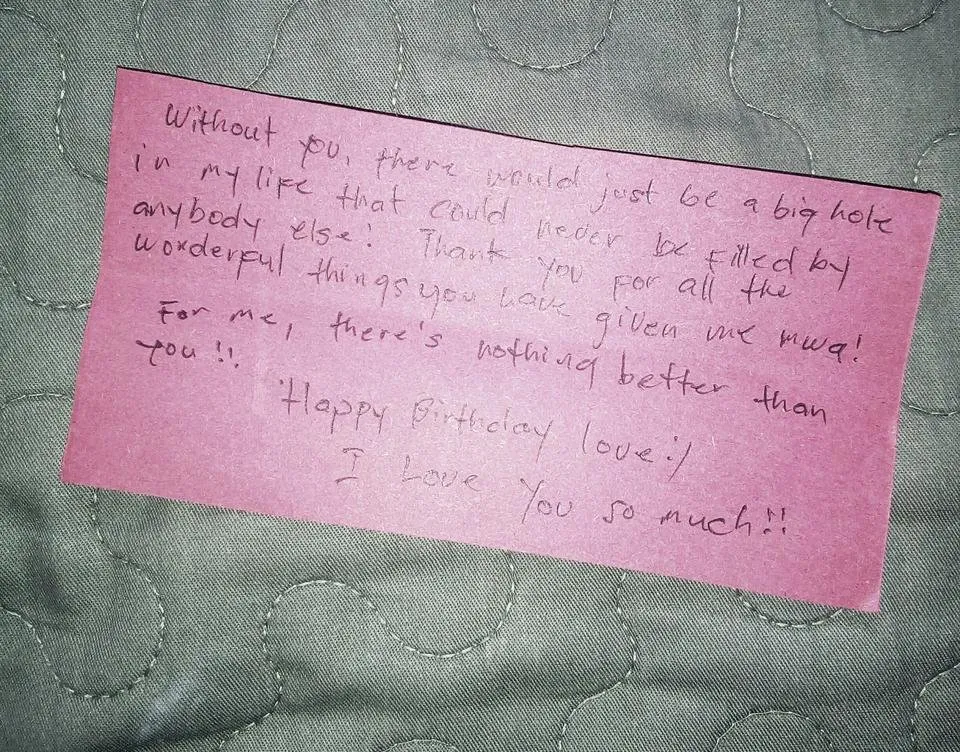 Without you, there would just be a big hole
in my life that could never be filled by
anybody else! Thank you for all the
wonderful things you have given me mwa!
For me, there's nothing better than
you!!
Happy Birthday love:)
I Love You so much!!